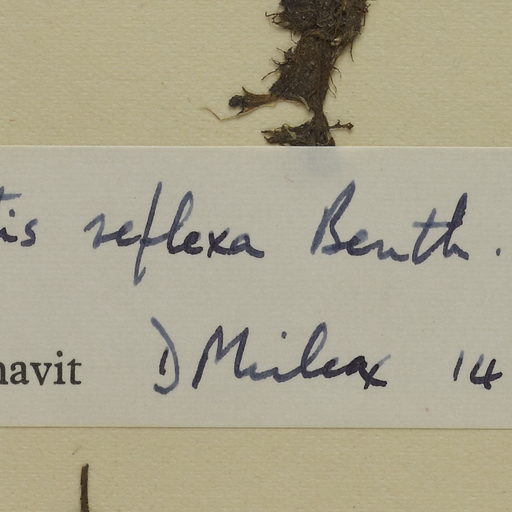 tis reflexa Benth.
navit D Philcox 14